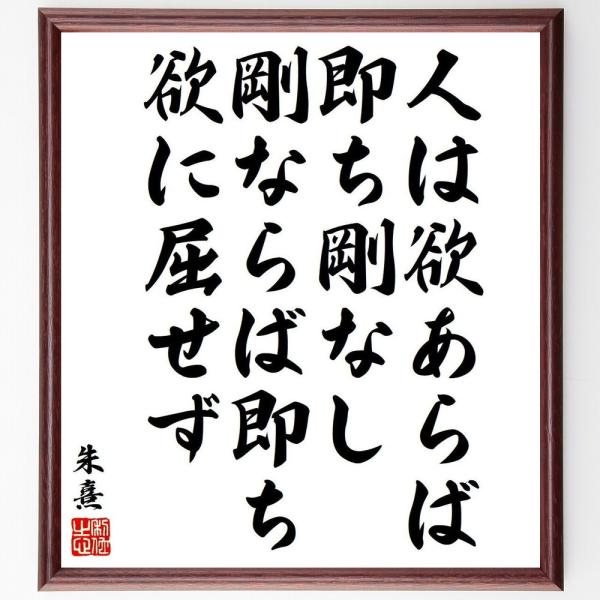 人は欲あらば
即ち剛なし
剛ならば即ち
欲に屈せず
朱熹